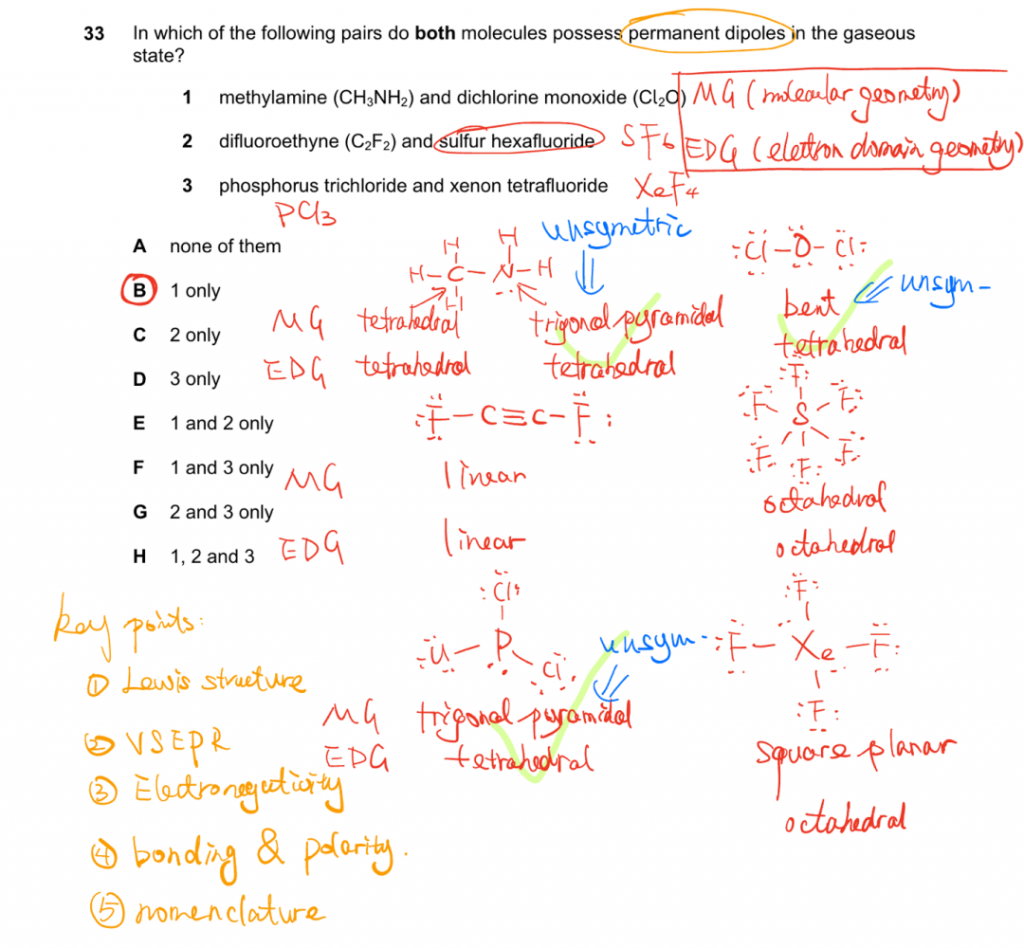 33 In which of the following pairs do both molecules possess permanent dipoles in the gaseous
state?
1 methylamine (CH₃NH₂) and dichlorine monoxide (Cl₂O) MG (molecular geometry)
2 difluoroethyne (C₂F₂) and sulfur hexafluoride SF6 EDG (elettron domain geometry)
3 phosphorus trichloride and xenon tetrafluoride XeF4
PCl3
A none of them
B 1 only
C 2 only
D 3 only
E 1 and 2 only
F 1 and 3 only
G 2 and 3 only
H 1, 2 and 3
unsymetric
H H
H–C–N–H
H
:Cl–O–Cl:
unsym-
MG tetrahedral trigonal pyramidal bent
EDG tetrahedral tetrahedral tetrahedral
:F–C≡C–F:
F
F S F
F F F
MG linear octahedral
EDG linear octahedral
:Cl:
:Cl–P
Cl
unsym-
:F:
:F–Xe–F:
:F:
MG trigonal pyramidal square planar
EDG tetrahedral octahedral
key points:
① Lewis structure
② VSEPR
③ Electronegativity
④ bonding & polarity.
⑤ nomenclature